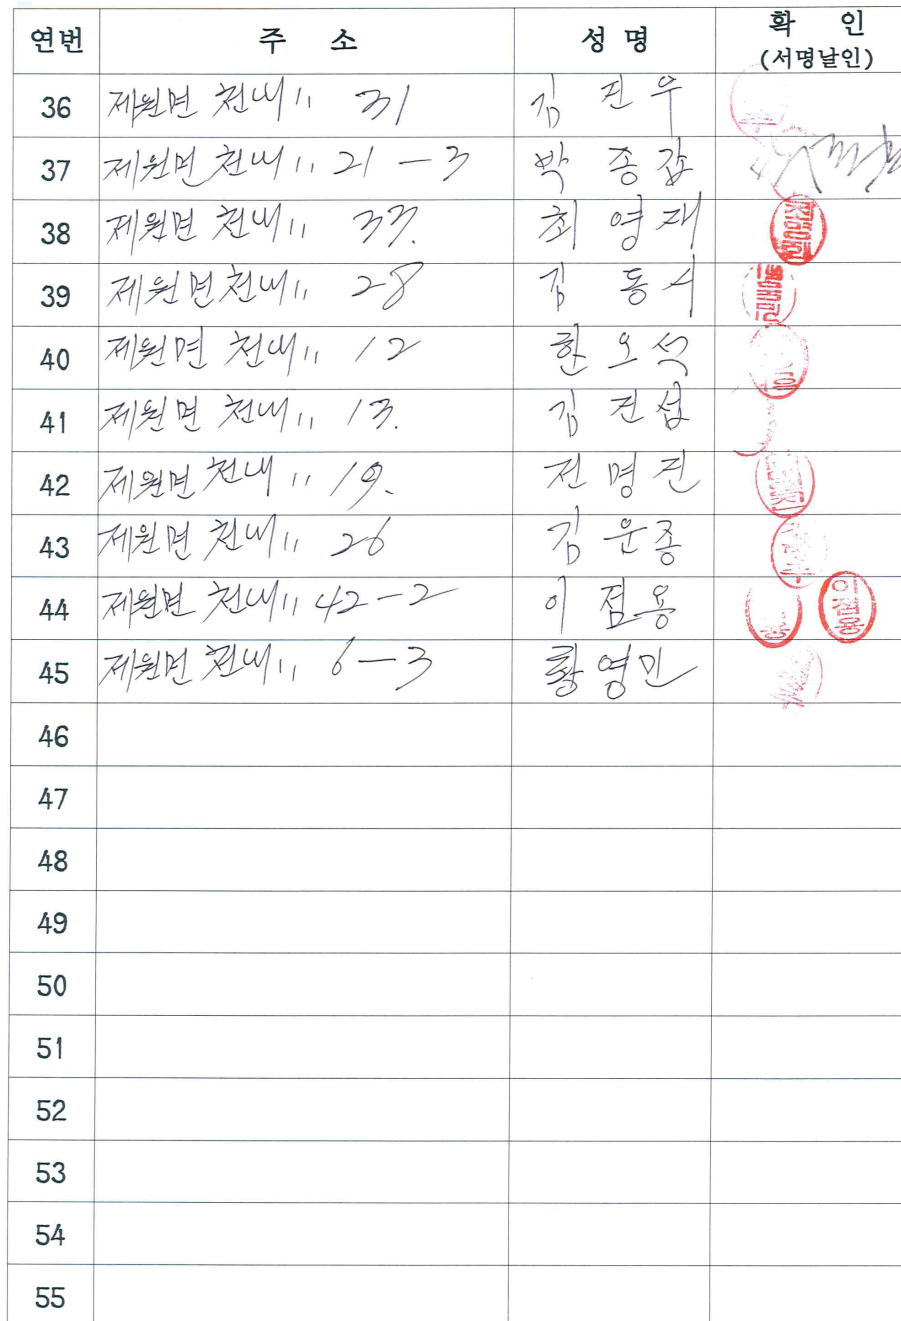 연번 주 소 성 명 확 인
(서명날인)
36 제원면 천내 11 31 김 진 우
37 제원면 천내 11 21 - 3 박 종 갑
38 제원면 천내 11 33. 최 영 재
39 제원면 천내 11 28 김 동 서
40 제원면 천내 11 12 한 오 석
41 제원면 천내 11 13. 김 진 섭
42 제원면 천내 11 19. 전 명 진
43 제원면 천내 11 26 김 운 종
44 제원면 천내 11 42 - 2 이 점 용
45 제원면 천내 11 6 - 3 황 영 민
46
47
48
49
50
51
52
53
54
55